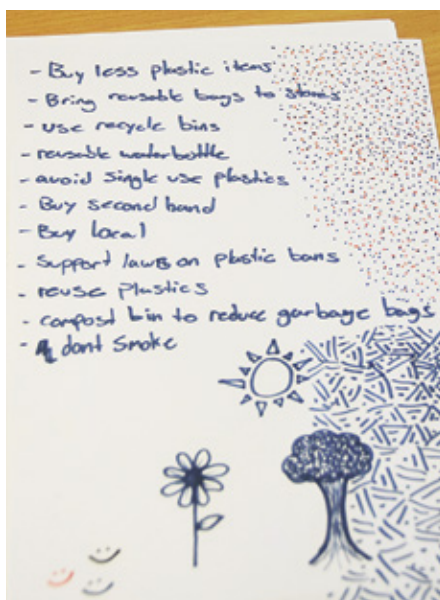 - Buy less plastic items
- Bring reusable bags to stores
- use recycle bins
- reusable waterbottle
- avoid single use plastics
- Buy second hand
- Buy local
- Support laws on plastic bans
- reuse plastics
- compost bin to reduce garbage bags
- dont smoke